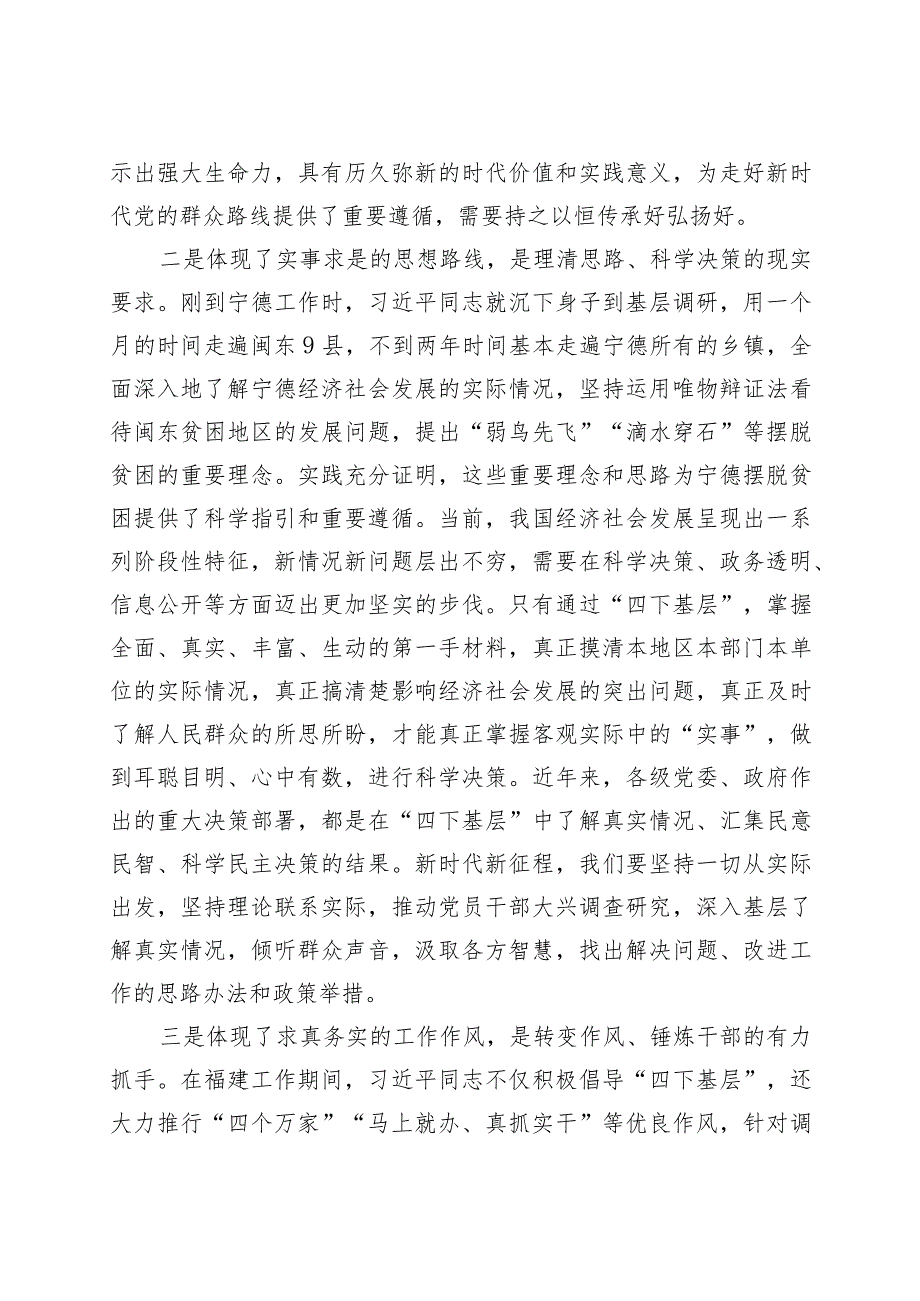 示出强大生命力，具有历久弥新的时代价值和实践意义，为走好新时
代党的群众路线提供了重要遵循，需要持之以恒传承好弘扬好。
二是体现了实事求是的思想路线，是理清思路、科学决策的现实
要求。刚到宁德工作时，习近平同志就沉下身子到基层调研，用一个
月的时间走遍闽东9县，不到两年时间基本走遍宁德所有的乡镇，全
面深入地了解宁德经济社会发展的实际情况，坚持运用唯物辩证法看
待闽东贫困地区的发展问题，提出“弱鸟先飞”“滴水穿石”等摆脱
贫困的重要理念。实践充分证明，这些重要理念和思路为宁德摆脱贫
困提供了科学指引和重要遵循。当前，我国经济社会发展呈现出一系
列阶段性特征，新情况新问题层出不穷，需要在科学决策、政务透明、
信息公开等方面迈出更加坚实的步伐。只有通过“四下基层”，掌握
全面、真实、丰富、生动的第一手材料，真正摸清本地区本部门本单
位的实际情况，真正搞清楚影响经济社会发展的突出问题，真正及时
了解人民群众的所思所盼，才能真正掌握客观实际中的“实事”，做
到耳聪目明、心中有数，进行科学决策。近年来，各级党委、政府作
出的重大决策部署，都是在“四下基层”中了解真实情况、汇集民意
民智、科学民主决策的结果。新时代新征程，我们要坚持一切从实际
出发，坚持理论联系实际，推动党员干部大兴调查研究，深入基层了
解真实情况，倾听群众声音，汲取各方智慧，找出解决问题、改进工
作的思路办法和政策举措。
三是体现了求真务实的工作作风，是转变作风、锤炼干部的有力
抓手。在福建工作期间，习近平同志不仅积极倡导“四下基层”，还
大力推行“四个万家”“马上就办、真抓实干”等优良作风，针对调